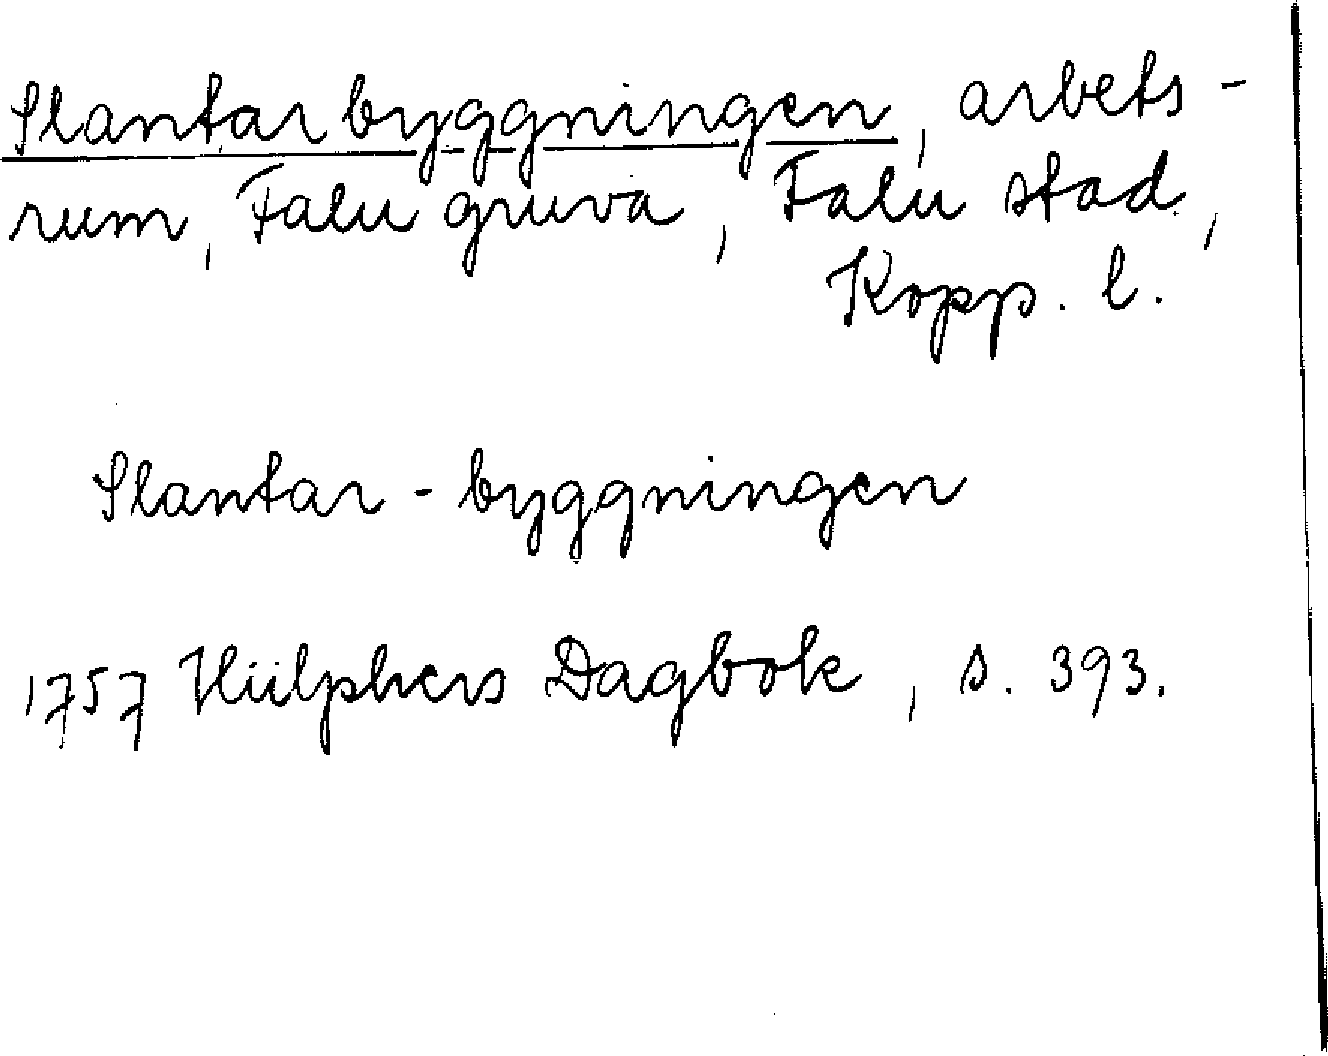 Slantarbyggningen, arbets-
rum, Falu gruva, Falu stad,
Kopp. l.
Slantar-byggningen
1757 Hülphers Dagbok, s. 393.